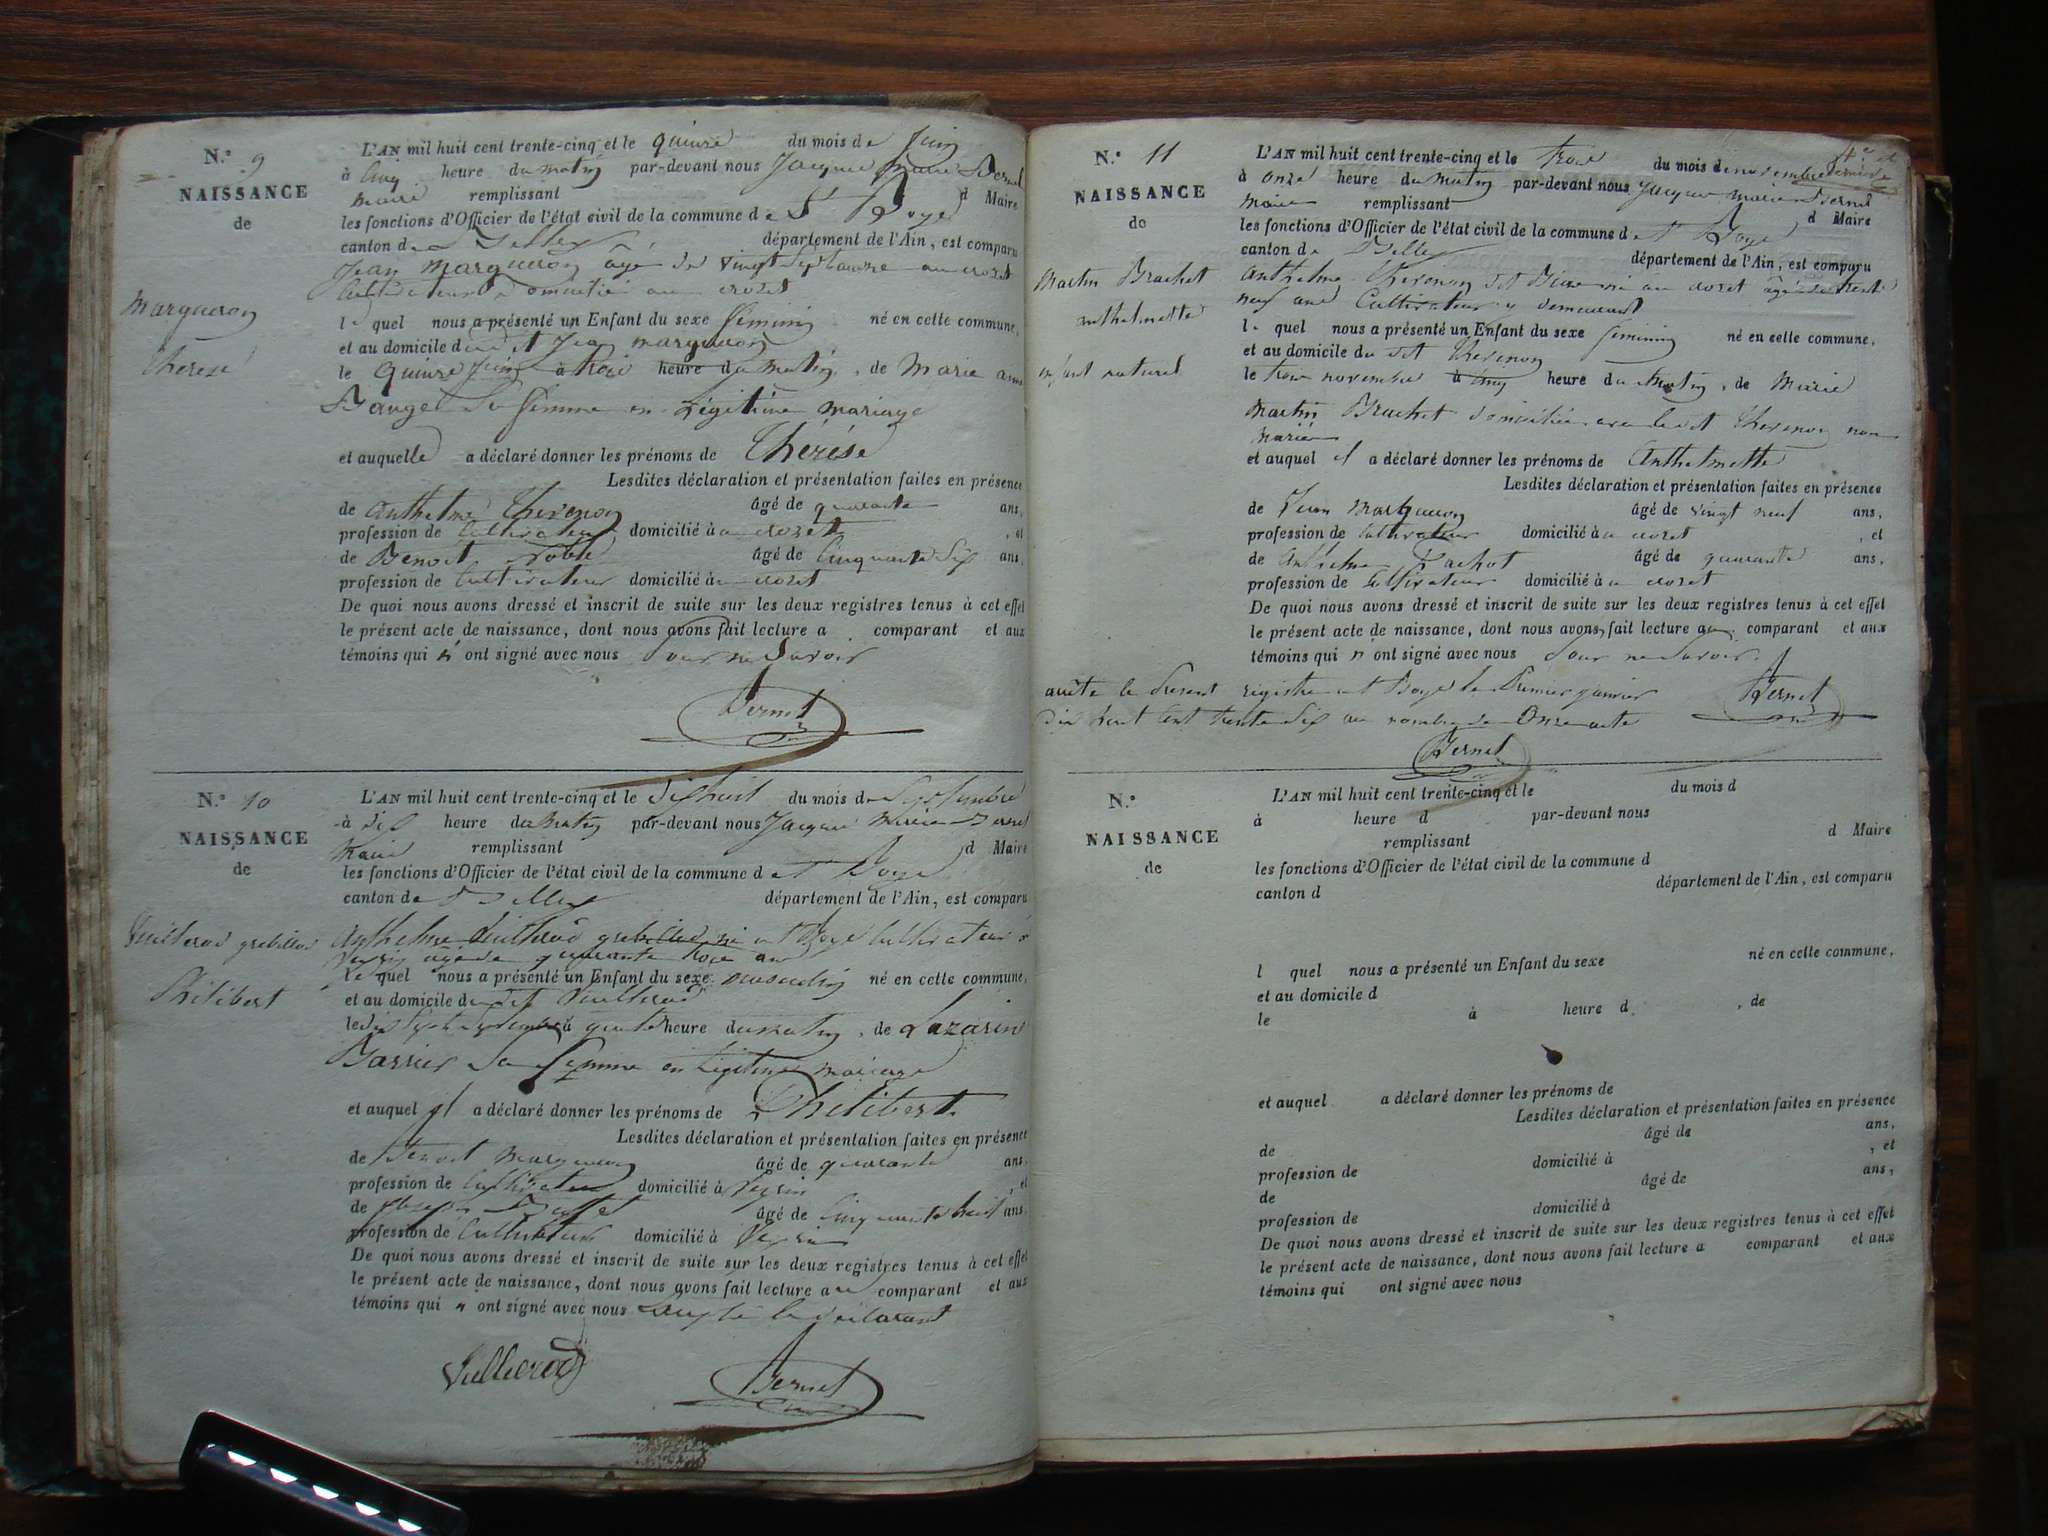 N.° 9
NAISSANCE
de
Margueron
Thérèse
L'AN mil huit cent trente-cinq et le quinze du mois de Juin
à Cinq heure du matin par-devant nous Jacques Marie Bernet
maire remplissant d Maire
les fonctions d'Officier de l'état civil de la commune de
canton de département de l'Ain, est comparu
Jean Margueron âgé de vingt au crozet
Cultivateur au crozet
le quel nous a présenté un Enfant du sexe féminin né en cette commune,
et au domicile du dit Jean margueron
le quinze Juin à trois heure du matin, de Marie anne
sa femme en Légitime mariage
et auquelle a déclaré donner les prénoms de Thérèse
Lesdites déclaration et présentation faites en présence
de anthelme Thevenon âgé de quarante ans,
profession de Cultivateur domicilié à au crozet, et
de Benoit âgé de Cinquante Six ans,
profession de Cultivateur domicilié à au crozet
De quoi nous avons dressé et inscrit de suite sur les deux registres tenus à cet effet
le présent acte de naissance, dont nous avons fait lecture a comparant et aux
témoins qui n' ont signé avec nous pour ne Savoir
Bernet
N.° 10
NAISSANCE
de
Philibert
L'AN mil huit cent trente-cinq et le dix huit du mois de Septembre
à dix heure du matin par-devant nous Jacques Marie Bernet
Maire remplissant d Maire
les fonctions d'Officier de l'état civil de la commune de
canton de département de l'Ain, est comparu
Anthelme Cultivateur à
âgé de quarante trois ans
Le quel nous a présenté un Enfant du sexe masculin né en cette commune,
et au domicile du dit
le dix Sept Septembre à heure du matin, de Lazarine
sa femme en Légitime mariage
et auquel il a déclaré donner les prénoms de Philibert
Lesdites déclaration et présentation faites en présence
de Benoit margueron âgé de quarante ans,
profession de Cultivateur domicilié à, et
de Joseph âgé de Cinquante huit ans,
profession de Cultivateur domicilié à
De quoi nous avons dressé et inscrit de suite sur les deux registres tenus à cet effet
le présent acte de naissance, dont nous avons fait lecture au comparant et aux
témoins qui n ont signé avec nous le déclarant
Bernet
N.° 11
NAISSANCE
de
Martin Brachet
anthelmette
enfant naturel
L'AN mil huit cent trente-cinq et le trois du mois de novembre
à onze heure du matin par-devant nous Jacques marie Bernet
Maire remplissant d Maire
les fonctions d'Officier de l'état civil de la commune de
canton de département de l'Ain, est comparu
anthelme Thevenon dit né au crozet âgé de trente
neuf ans Cultivateur y demeurant
le quel nous a présenté un Enfant du sexe féminin né en cette commune,
et au domicile du dit Thevenon
le trois novembre à cinq heure du matin, de Marie
Martin Brachet domiciliée avec le dit Thevenon non
mariée
et auquel il a déclaré donner les prénoms de Anthelmette
Lesdites déclaration et présentation faites en présence
de Jean Margueron âgé de vingt neuf ans,
profession de Cultivateur domicilié à au crozet, et
de Anthelme âgé de quarante ans,
profession de Cultivateur domicilié à au crozet
De quoi nous avons dressé et inscrit de suite sur les deux registres tenus à cet effet
le présent acte de naissance, dont nous avons fait lecture au comparant et aux
témoins qui n ont signé avec nous pour ne Savoir.
arrêté le present registre le Premier janvier
dix huit cent trente Six au nombre de Onze acte
Bernet
Bernet
N.°
NAISSANCE
de
L'AN mil huit cent trente-cinq et le du mois d
à heure d par-devant nous
remplissant d Maire
les fonctions d'Officier de l'état civil de la commune d
canton d département de l'Ain, est comparu
l quel nous a présenté un Enfant du sexe né en cette commune,
et au domicile d
le à heure d, de
et auquel a déclaré donner les prénoms de
Lesdites déclaration et présentation faites en présence
de âgé de ans,
profession de domicilié à, et
de âgé de ans,
profession de domicilié à
De quoi nous avons dressé et inscrit de suite sur les deux registres tenus à cet effet
le présent acte de naissance, dont nous avons fait lecture a comparant et aux
témoins qui ont signé avec nous